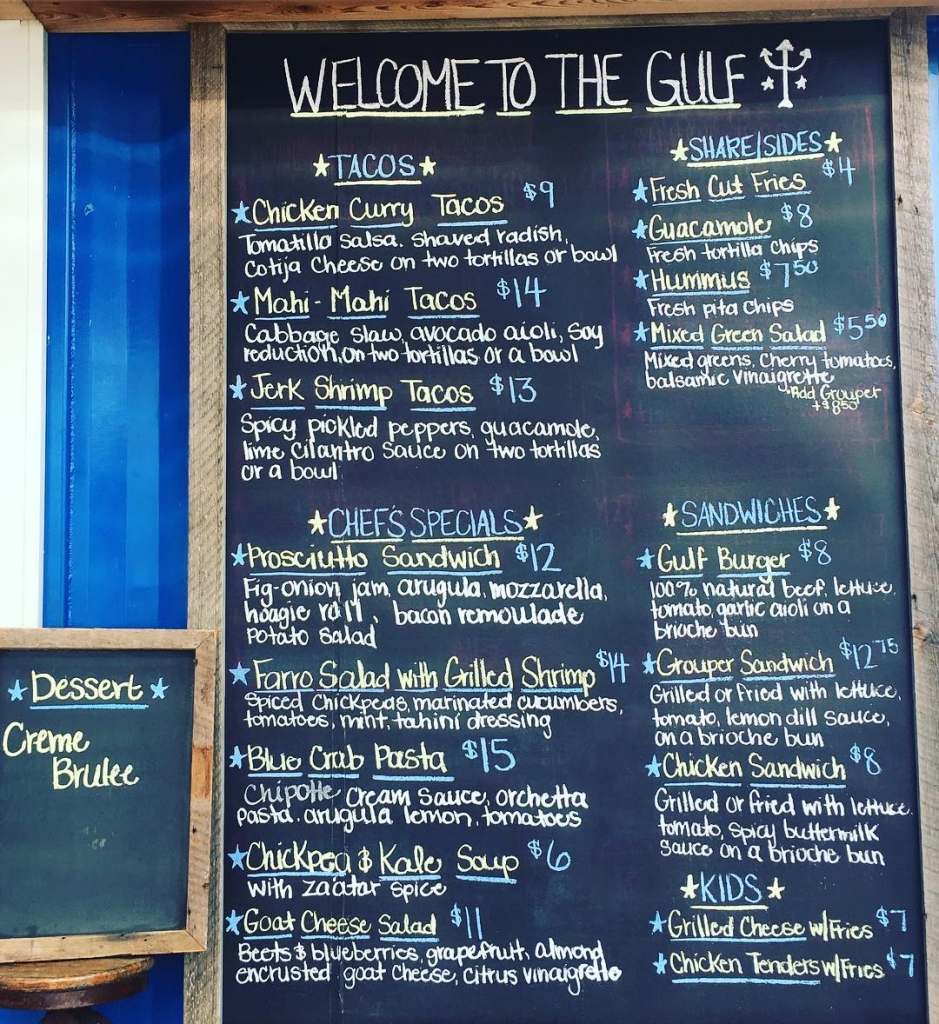 WELCOME TO THE GULF
★TACOS★
★Chicken Curry Tacos $9
Tomatillo Salsa. Shaved radish,
Cotija Cheese on two tortillas or bowl
★Mahi-Mahi Tacos $14
Cabbage Slaw, avocado aioli, Soy
reduction, on two tortillas or a bowl
★Jerk Shrimp Tacos $13
Spicy pickled peppers, guacamole,
lime Cilantro Sauce on two tortillas
or a bowl
★SHARE/SIDES★
★Fresh Cut Fries $4
★Guacamole $8
Fresh tortilla chips
★Hummus $7.50
Fresh pita chips
★Mixed Green Salad $5.50
Mixed greens, Cherry tomatoes,
balsamic vinaigrette
*Add Grouper
+$8.50
★CHEF'S SPECIALS★
★Prosciutto Sandwich $12
Fig-onion jam, arugula, mozzarella,
hoagie roll, bacon remoulade
Potato Salad
★Farro Salad with Grilled Shrimp $14
Spiced Chickpeas, marinated cucumbers,
tomatoes, mint, tahini dressing
★Blue Crab Pasta $15
Chipotle Cream Sauce, orchetta
Pasta. arugula lemon, tomatoes
★Chickpea & Kale Soup $6
with za'atar spice
★Goat Cheese Salad $11
Beets & blueberries, grapefruit, almond
encrusted goat cheese, citrus vinaigrette
★SANDWICHES★
★Gulf Burger $8
100% natural beef, lettuce,
tomato, garlic aioli on a
brioche bun
★Grouper Sandwich $12.75
Grilled or Fried with lettuce,
tomato, lemon dill sauce,
on a brioche bun
★Chicken Sandwich $8
Grilled or fried with lettuce,
tomato, spicy buttermilk
sauce on a brioche bun
★KIDS★
★Grilled Cheese w/Fries $7
★Chicken Tenders w/Fries $7
★Dessert★
Creme
Brulee